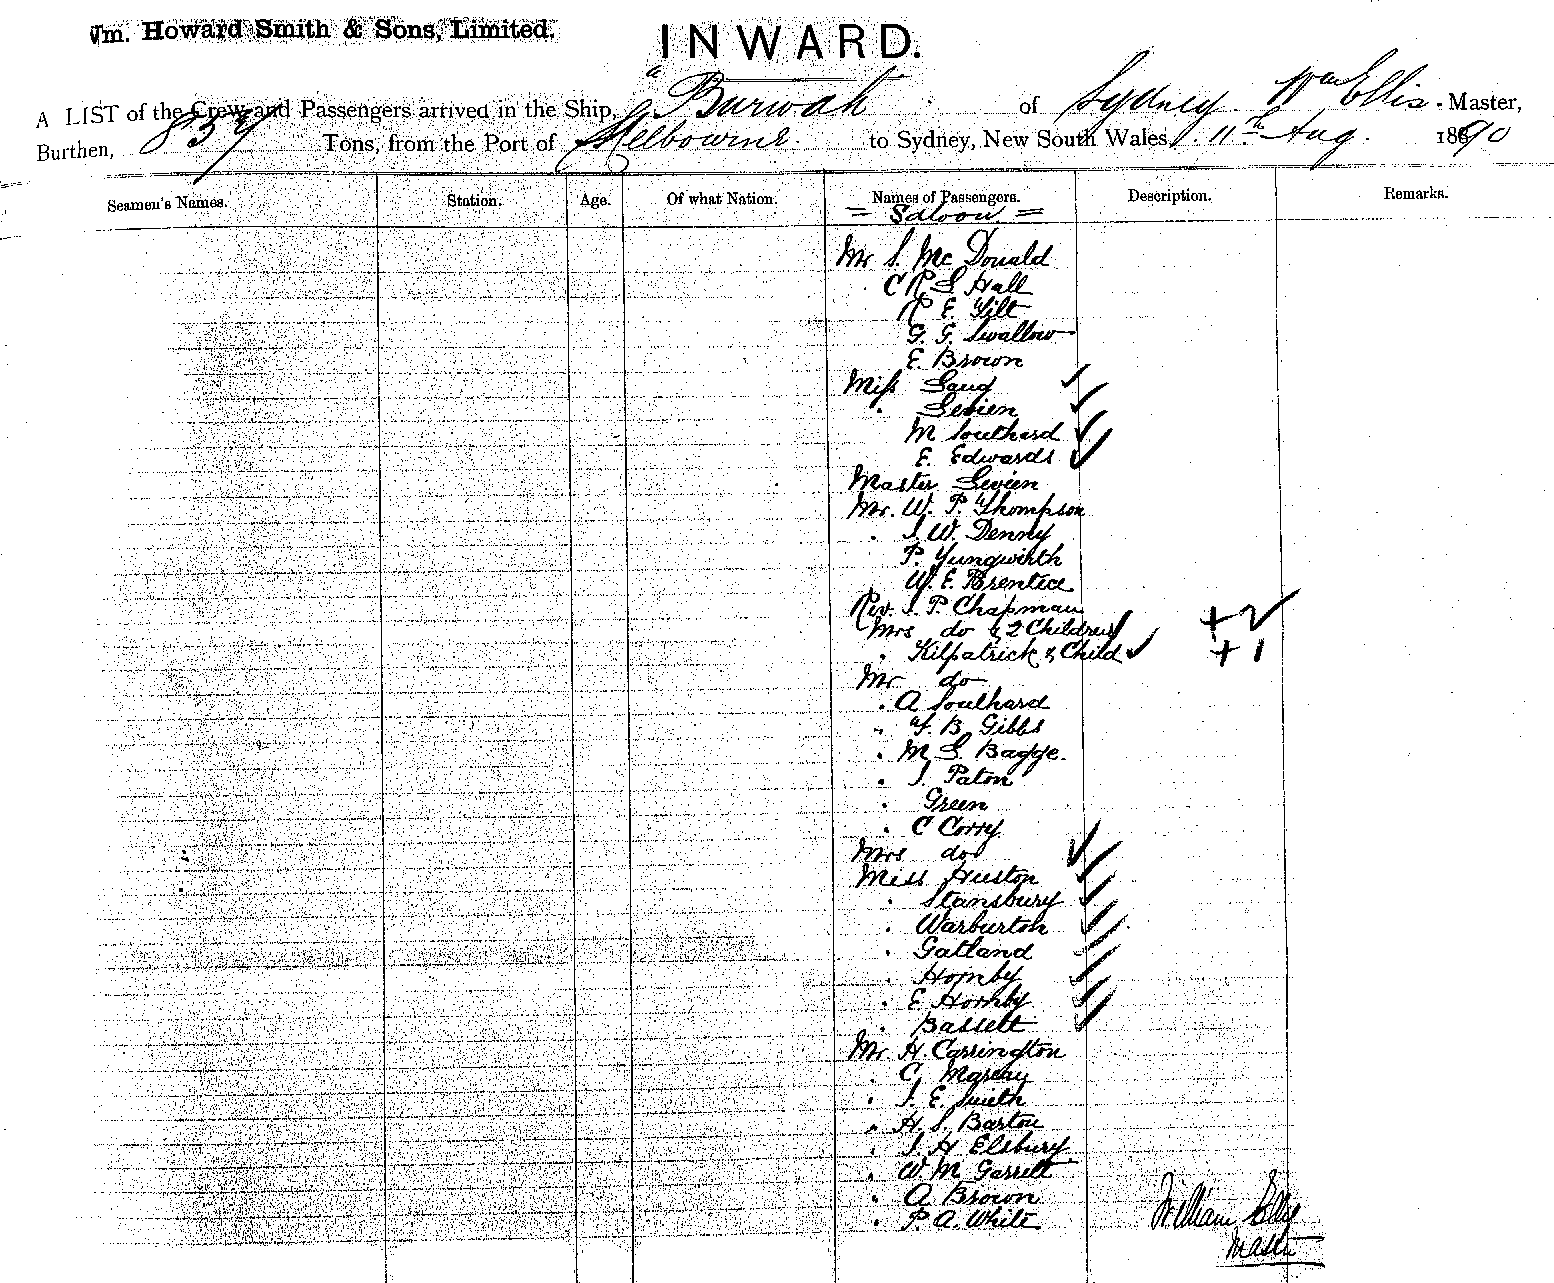 Wm. Howard Smith & Sons, Limited.
INWARD.
A LIST of the Crew and Passengers arrived in the Ship, "Burwah of Sydney Wm Ellis. Master,
Burthen, 857 Tons, from the Port of Melbourne. to Sydney, New South Wales, 11th Aug. 1890
Seamen's Names. Station. Age. Of what Nation. Names of Passengers. Description. Remarks.
= Saloon =
Mr S. McDonald
C R S Hall
R E Tilt
G. G. Swallow
E. Brown
Miss
" Levien
M Southard
E. Edwards
Master Levien
Mr. W. P. Thompson
" J. W. Denny
P. Yungwirth
W. E. Prentice
Rev. J. P. Chapman
Mrs do & 2 Children +2
" Kilpatrick & Child +1
Mr do
" A Southard
" T. B. Gibbs
" M S. Bagge.
" J. Paton
" Green
" C Corry.
Mrs do
Miss Huston
" Stansbury
" Warburton
" Gatland
" Hornby
" E Hornby
" Bassett
Mr H. Carrington
" C.
" J. E. Smith
" H. S. Barton
" J. H Elsbury
" W. M Garrett
" A. Brown
" P. A. White
William Ellis
Master